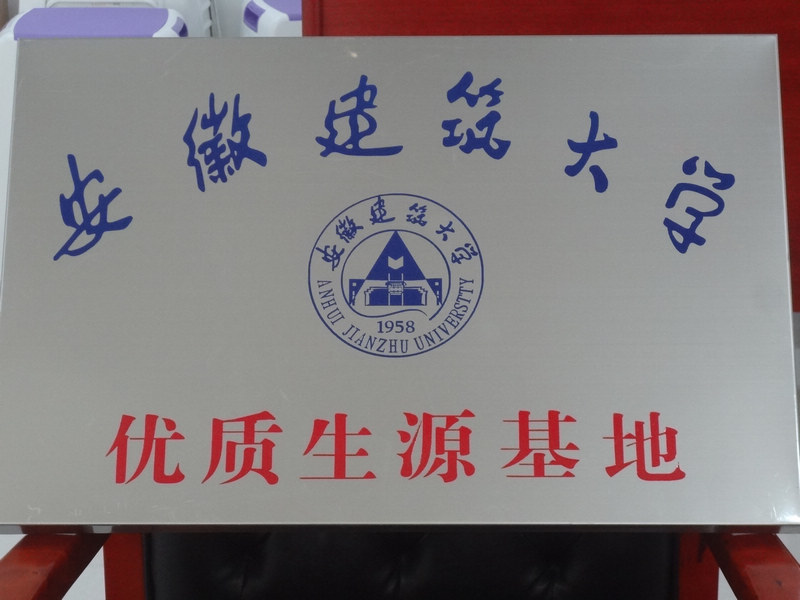 安徽建筑大学
安徽建筑大学
1958
ANHUI JIANZHU UNIVERSTTY
优质生源基地